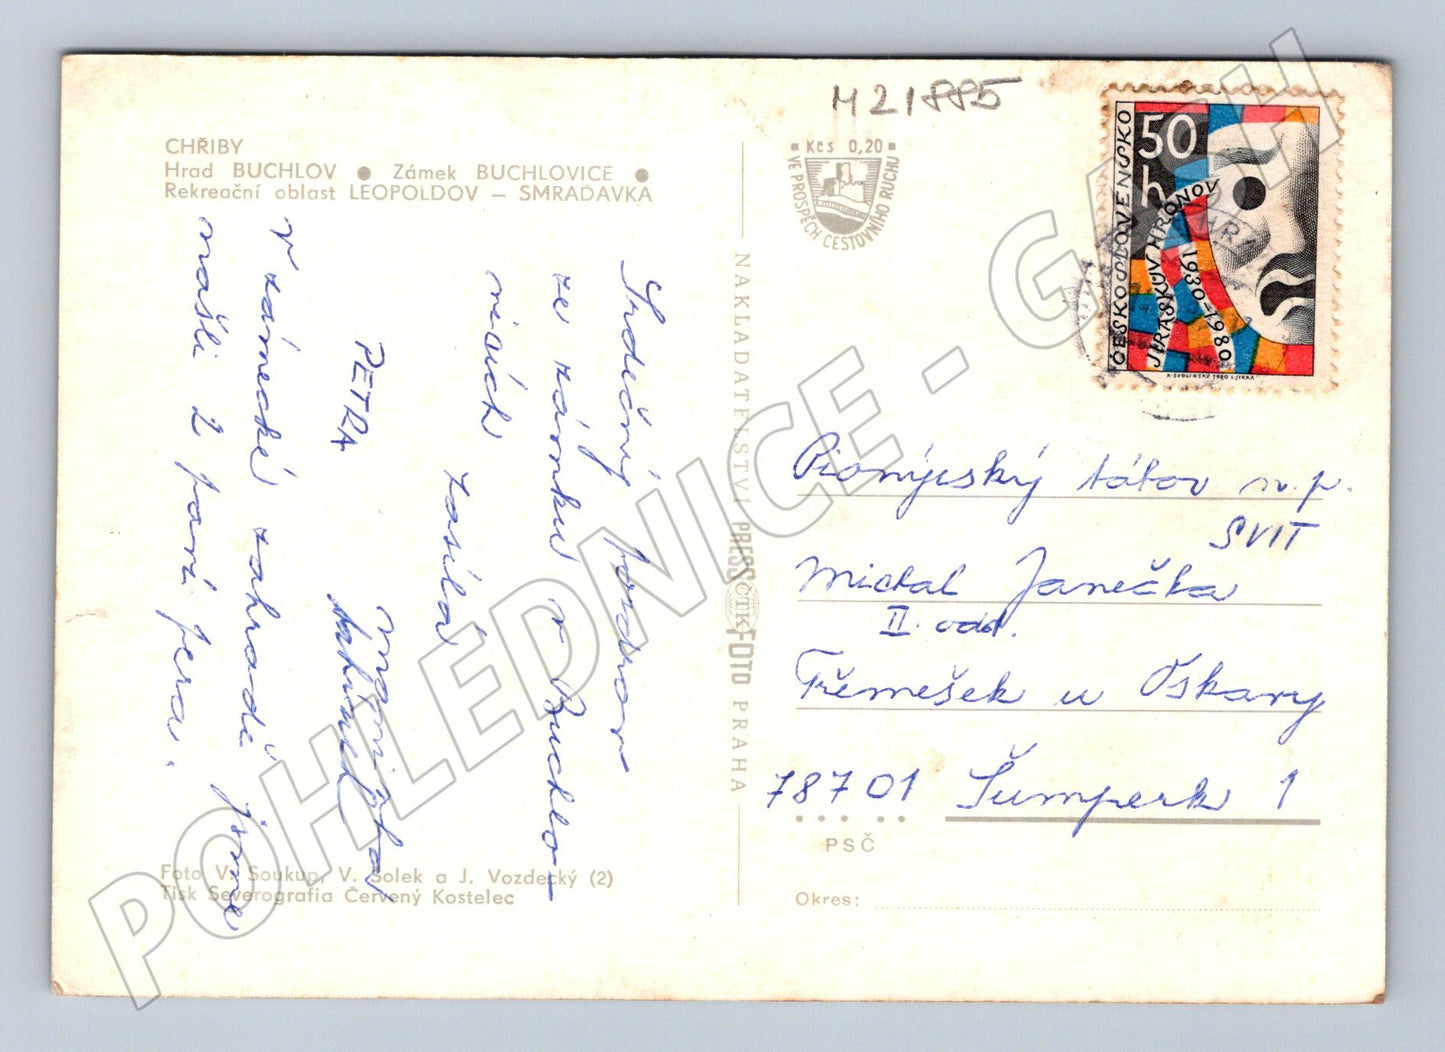 M21885
CHŘIBY
Hrad BUCHLOV ● Zámek BUCHLOVICE ●
Rekreační oblast LEOPOLDOV – SMRAĎAVKA
Kčs 0,20
VE PROSPĚCH CESTOVNÍHO RUCHU
ČESKOSLOVENSKO
50
h
JIRÁSKŮV HRONOV
1930–1980
K. SVOLINSKÝ 1980 L. JIRKA
Srdečný pozdrav
ze zámku v Buchlo-
vicích
zasílá
mami táta
PETRA
V zámecké zahradě jsme
našli 2 paví pera.
NAKLADATELSTVÍ PRESSFOTO PRAHA
ČTK
Pionýrský tábor n.p.
SVIT
Michal Janečka
II. odd.
Třemešek u Oskavy
78701 Šumperk 1
PSČ
Okres:
Foto V. Soukup, V. Šolek a J. Vozdecký (2)
Tisk Severografia Červený Kostelec
POHLEDNICE - GASH